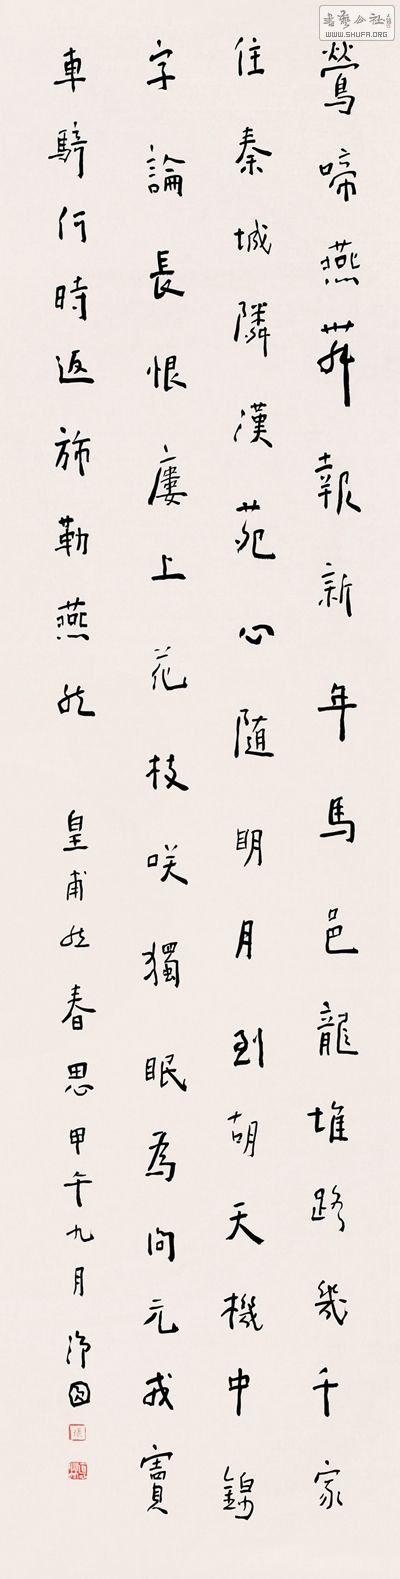 書藝公社
WWW.SHUFA.ORG
鶯啼燕舞報新年馬邑龍堆路幾千家
住秦城隣漢苑心随明月到胡天機中錦
字論長恨廔上花枝咲獨眠為問元戎竇
車騎何時返旆勒燕然 皇甫然春思甲午九月